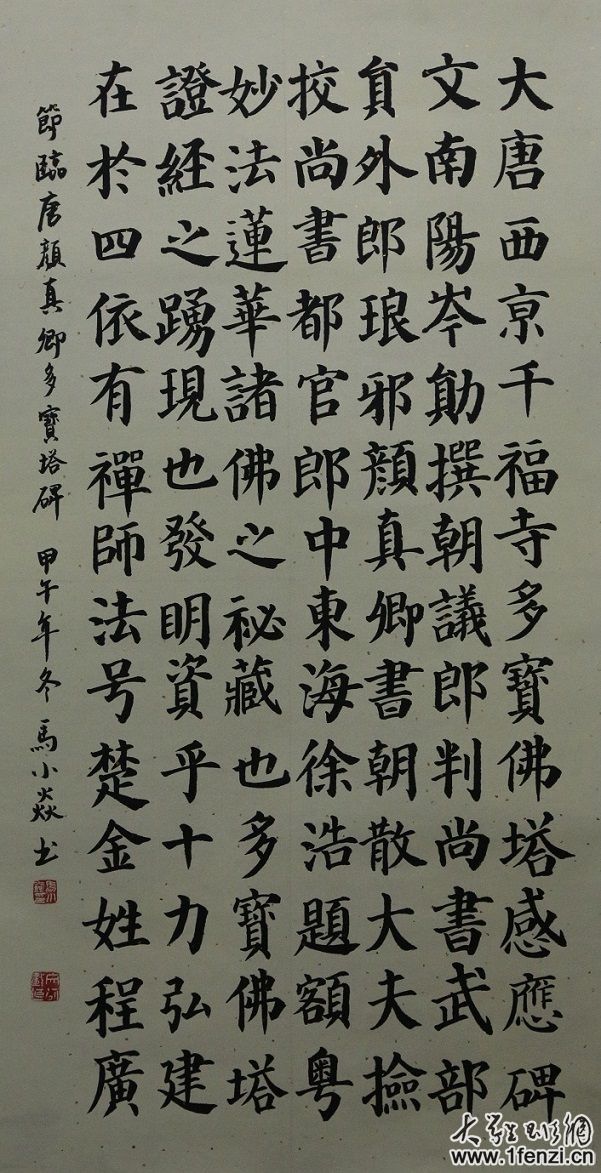 大唐西京千福寺多寶佛塔感應碑
文南陽岑勛撰朝議郎判尚書武部
負外郎琅邪顏真卿書朝散大夫撿
挍尚書都官郎中東海徐浩題額粤
妙法蓮華諸佛之祕藏也多寶佛塔
證經之踴現也發明資乎十力弘建
在於四依有禪師法号楚金姓程廣
節臨唐顏真卿多寶塔碑 甲午年冬 馬小焱书
www.1fenzi.cn